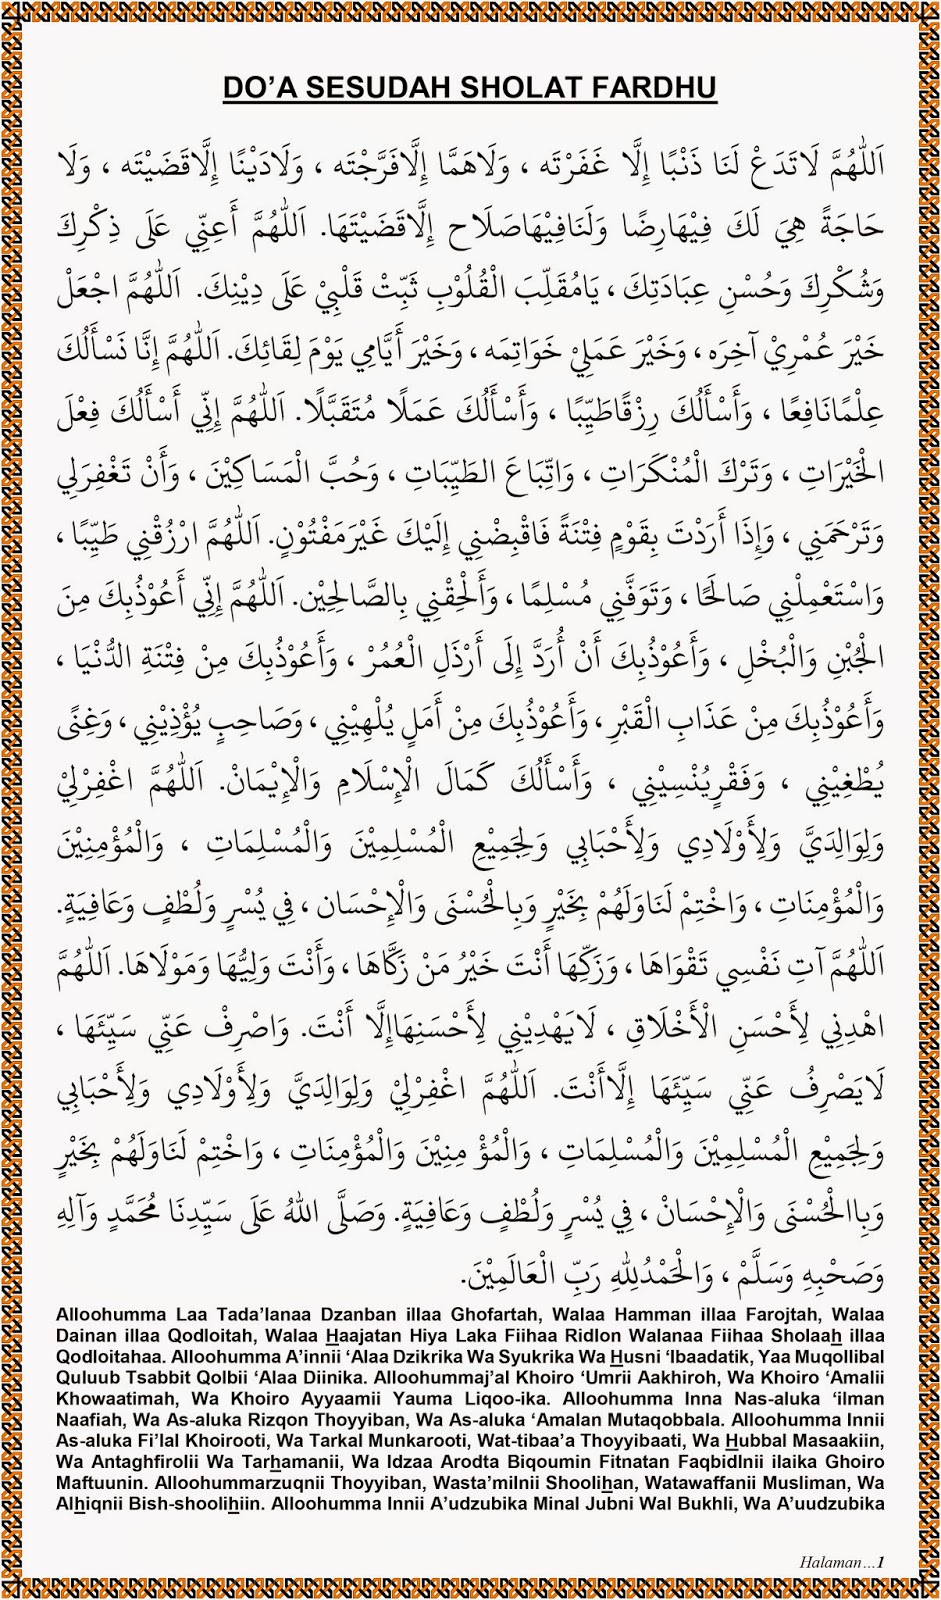 DO’A SESUDAH SHOLAT FARDHU
اَللّٰهُمَّ لَاتَدَعْ لَنَا ذَنْبًا إِلَّا غَفَرْتَه ، وَلَاهَمًّا إِلَّافَرَّجْتَه ، وَلَادَيْنًا إِلَّاقَضَيْتَه ، وَلَا
حَاجَةً هِيَ لَكَ فِيْهَارِضًا وَلَنَافِيْهَاصَلَاح إِلَّاقَضَيْتَهَا. اَللّٰهُمَّ أَعِنِّي عَلَى ذِكْرِكَ
وَشُكْرِكَ وَحُسْنِ عِبَادَتِكَ ، يَامُقَلِّبَ الْقُلُوْبِ ثَبِّتْ قَلْبِيْ عَلَى دِيْنِكَ. اَللّٰهُمَّ اجْعَلْ
خَيْرَ عُمْرِيْ آخِرَه ، وَخَيْرَ عَمَلِيْ خَوَاتِمَه ، وَخَيْرَ أَيَّامِي يَوْمَ لِقَائِكَ. اَللّٰهُمَّ إِنَّا نَسْأَلُكَ
عِلْمًانَافِعًا ، وَأَسْأَلُكَ رِزْقًاطَيِّبًا ، وَأَسْأَلُكَ عَمَلًا مُتَقَبَّلًا. اَللّٰهُمَّ إِنِّي أَسْأَلُكَ فِعْلَ
الْخَيْرَاتِ ، وَتَرْكَ الْمُنْكَرَاتِ ، وَاتِّبَاعَ الطَيِّبَاتِ ، وَحُبَّ الْمَسَاكِيْنَ ، وَأَنْ تَغْفِرَلِي
وَتَرْحَمَنِي ، وَإِذَا أَرَدْتَ بِقَوْمٍ فِتْنَةً فَاقْبِضْنِي إِلَيْكَ غَيْرَمَفْتُوْنٍ. اَللّٰهُمَّ ارْزُقْنِي طَيِّبًا ،
وَاسْتَعْمِلْنِي صَالِحًا ، وَتَوَفَّنِي مُسْلِمًا ، وَأَلْحِقْنِي بِالصَّالِحِيْن. اَللّٰهُمَّ إِنِّي أَعُوْذُبِكَ مِنَ
الْجُبْنِ وَالْبُخْلِ ، وَأَعُوْذُبِكَ أَنْ أُرَدَّ إِلَى أَرْذَلِ الْعُمُرْ ، وَأَعُوْذُبِكَ مِنْ فِتْنَةِ الدُّنْيَا ،
وَأَعُوْذُبِكَ مِنْ عَذَابِ الْقَبْرِ ، وَأَعُوْذُبِكَ مِنْ أَمَلٍ يُلْهِيْنِي ، وَصَاحِبٍ يُؤْذِيْنِي ، وَغِنًى
يُطْغِيْنِي ، وَفَقْرٍيُنْسِيْنِي ، وَأَسْأَلُكَ كَمَالَ الْإِسْلَامِ وَالْإِيْمَانْ. اَللّٰهُمَّ اغْفِرْلِيْ
وَلِوَالِدَيَّ وَلِأَوْلَادِي وَلِأَحْبَابِي وَلِجَمِيْعِ الْمُسْلِمِيْنَ وَالْمُسْلِمَاتِ ، وَالْمُؤْمِنِيْنَ
وَالْمُؤْمِنَاتِ ، وَاخْتِمْ لَنَاوَلَهُمْ بِخَيْرٍ وَبِالْحُسْنَى وَالْإِحْسَان ، فِي يُسْرٍ وَلُطْفٍ وَعَافِيَةٍ.
اَللّٰهُمَّ آتِ نَفْسِي تَقْوَاهَا ، وَزَكِّهَا أَنْتَ خَيْرُ مَنْ زَكَّاهَا ، وَأَنْتَ وَلِيُّهَا وَمَوْلَاهَا. اَللّٰهُمَّ
اهْدِنِي لِأَحْسَنِ الْأَخْلَاقِ ، لَايَهْدِيْنِي لِأَحْسَنِهَاإِلَّا أَنْتَ. وَاصْرِفْ عَنِّي سَيِّئَهَا ،
لَايَصْرِفُ عَنِّي سَيِّئَهَا إِلَّاأَنْتَ. اَللّٰهُمَّ اغْفِرْلِيْ وَلِوَالِدَيَّ وَلِأَوْلَادِي وَلِأَحْبَابِي
وَلِجَمِيْعِ الْمُسْلِمِيْنَ وَالْمُسْلِمَاتِ ، وَالْمُؤْ مِنِيْنَ وَالْمُؤْمِنَاتِ ، وَاخْتِمْ لَنَاوَلَهُمْ بِخَيْرٍ
وَبِاالْحُسْنَى وَالْإِحْسَانْ ، فِي يُسْرٍ وَلُطْفٍ وَعَافِيَةٍ. وَصَلَّى اللهُ عَلَى سَيِّدِنَا مُحَمَّدٍ وَآلِهِ
وَصَحْبِهِ وَسَلَّمْ ، وَالْحَمْدُلِلّٰهِ رَبِّ الْعَالَمِيْنَ.
Alloohumma Laa Tada’lanaa Dzanban illaa Ghofartah, Walaa Hamman illaa Farojtah, Walaa
Dainan illaa Qodloitah, Walaa Haajatan Hiya Laka Fiihaa Ridlon Walanaa Fiihaa Sholaah illaa
Qodloitahaa. Alloohumma A’innii ‘Alaa Dzikrika Wa Syukrika Wa Husni ‘Ibaadatik, Yaa Muqollibal
Quluub Tsabbit Qolbii ‘Alaa Diinika. Alloohummaj’al Khoiro ‘Umrii Aakhiroh, Wa Khoiro ‘Amalii
Khowaatimah, Wa Khoiro Ayyaamii Yauma Liqoo-ika. Alloohumma Inna Nas-aluka ‘ilman
Naafiah, Wa As-aluka Rizqon Thoyyiban, Wa As-aluka ‘Amalan Mutaqobbala. Alloohumma Innii
As-aluka Fi’lal Khoirooti, Wa Tarkal Munkarooti, Wat-tibaa’a Thoyyibaati, Wa Hubbal Masaakiin,
Wa Antaghfirolii Wa Tarhamanii, Wa Idzaa Arodta Biqoumin Fitnatan Faqbidlnii ilaika Ghoiro
Maftuunin. Alloohummarzuqnii Thoyyiban, Wasta’milnii Shoolihan, Watawaffanii Musliman, Wa
Alhiqnii Bish-shoolihiin. Alloohumma Innii A’udzubika Minal Jubni Wal Bukhli, Wa A’uudzubika
Halaman...1